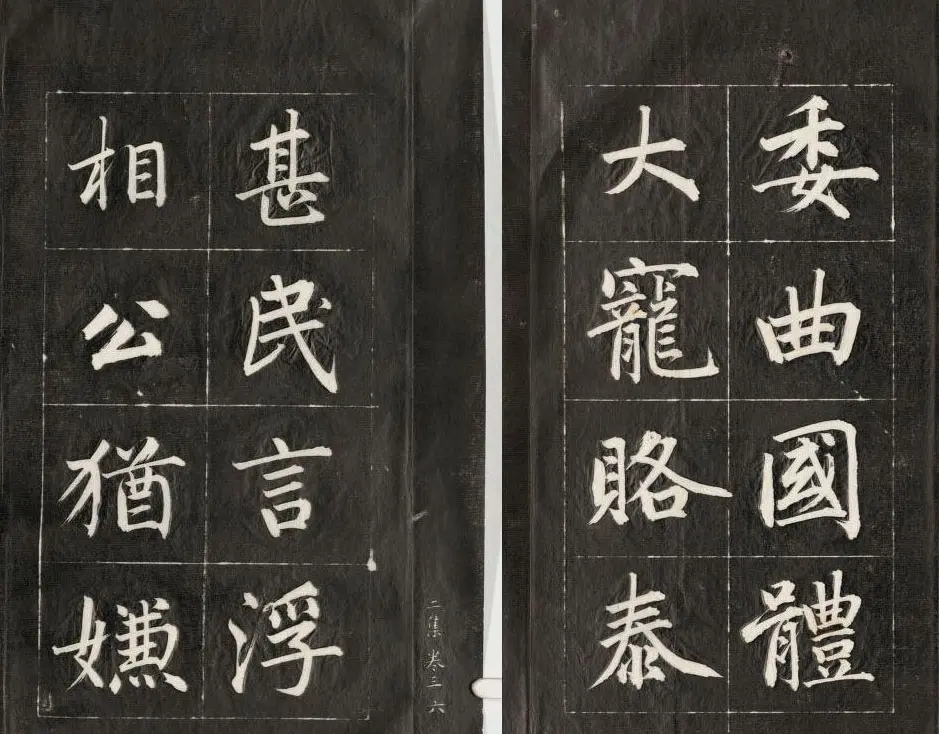 委曲國體
大寵賂泰
甚民言浮
相公猶嫌
二集 卷三 六